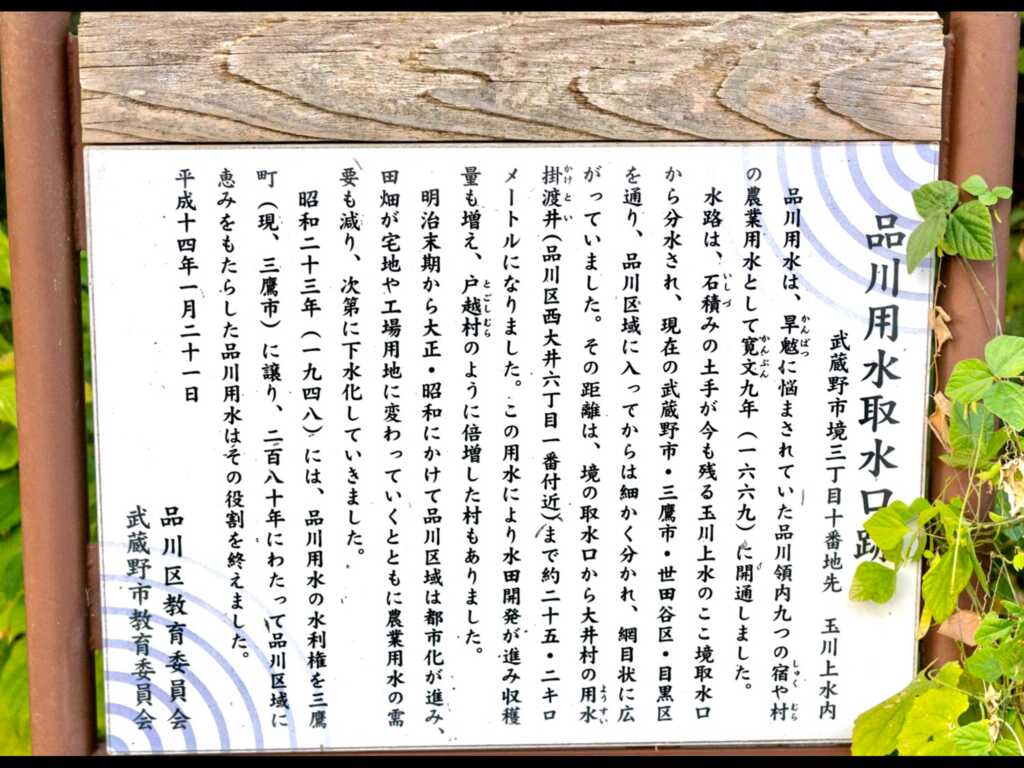 品川用水取水口跡
武蔵野市境三丁目十番地先　玉川上水内
品川用水は、旱魃に悩まされていた品川領内九つの宿や村
の農業用水として寛文九年（一六六九）に開通しました。
水路は、石積みの土手が今も残る玉川上水のここ境取水口
から分水され、現在の武蔵野市・三鷹市・世田谷区・目黒区
を通り、品川区域に入ってからは細かく分かれ、網目状に広
がっていました。その距離は、境の取水口から大井村の用水
掛渡井（品川区西大井六丁目一番付近）まで約二十五・二キロ
メートルになりました。この用水により水田開発が進み収穫
量も増え、戸越村のように倍増した村もありました。
明治末期から大正・昭和にかけて品川区域は都市化が進み、
田畑が宅地や工場用地に変わっていくとともに農業用水の需
要も減り、次第に下水化していきました。
昭和二十三年（一九四八）には、品川用水の水利権を三鷹
町（現、三鷹市）に譲り、二百八十年にわたって品川区域に
恵みをもたらした品川用水はその役割を終えました。
平成十四年一月二十一日
品川区教育委員会
武蔵野市教育委員会